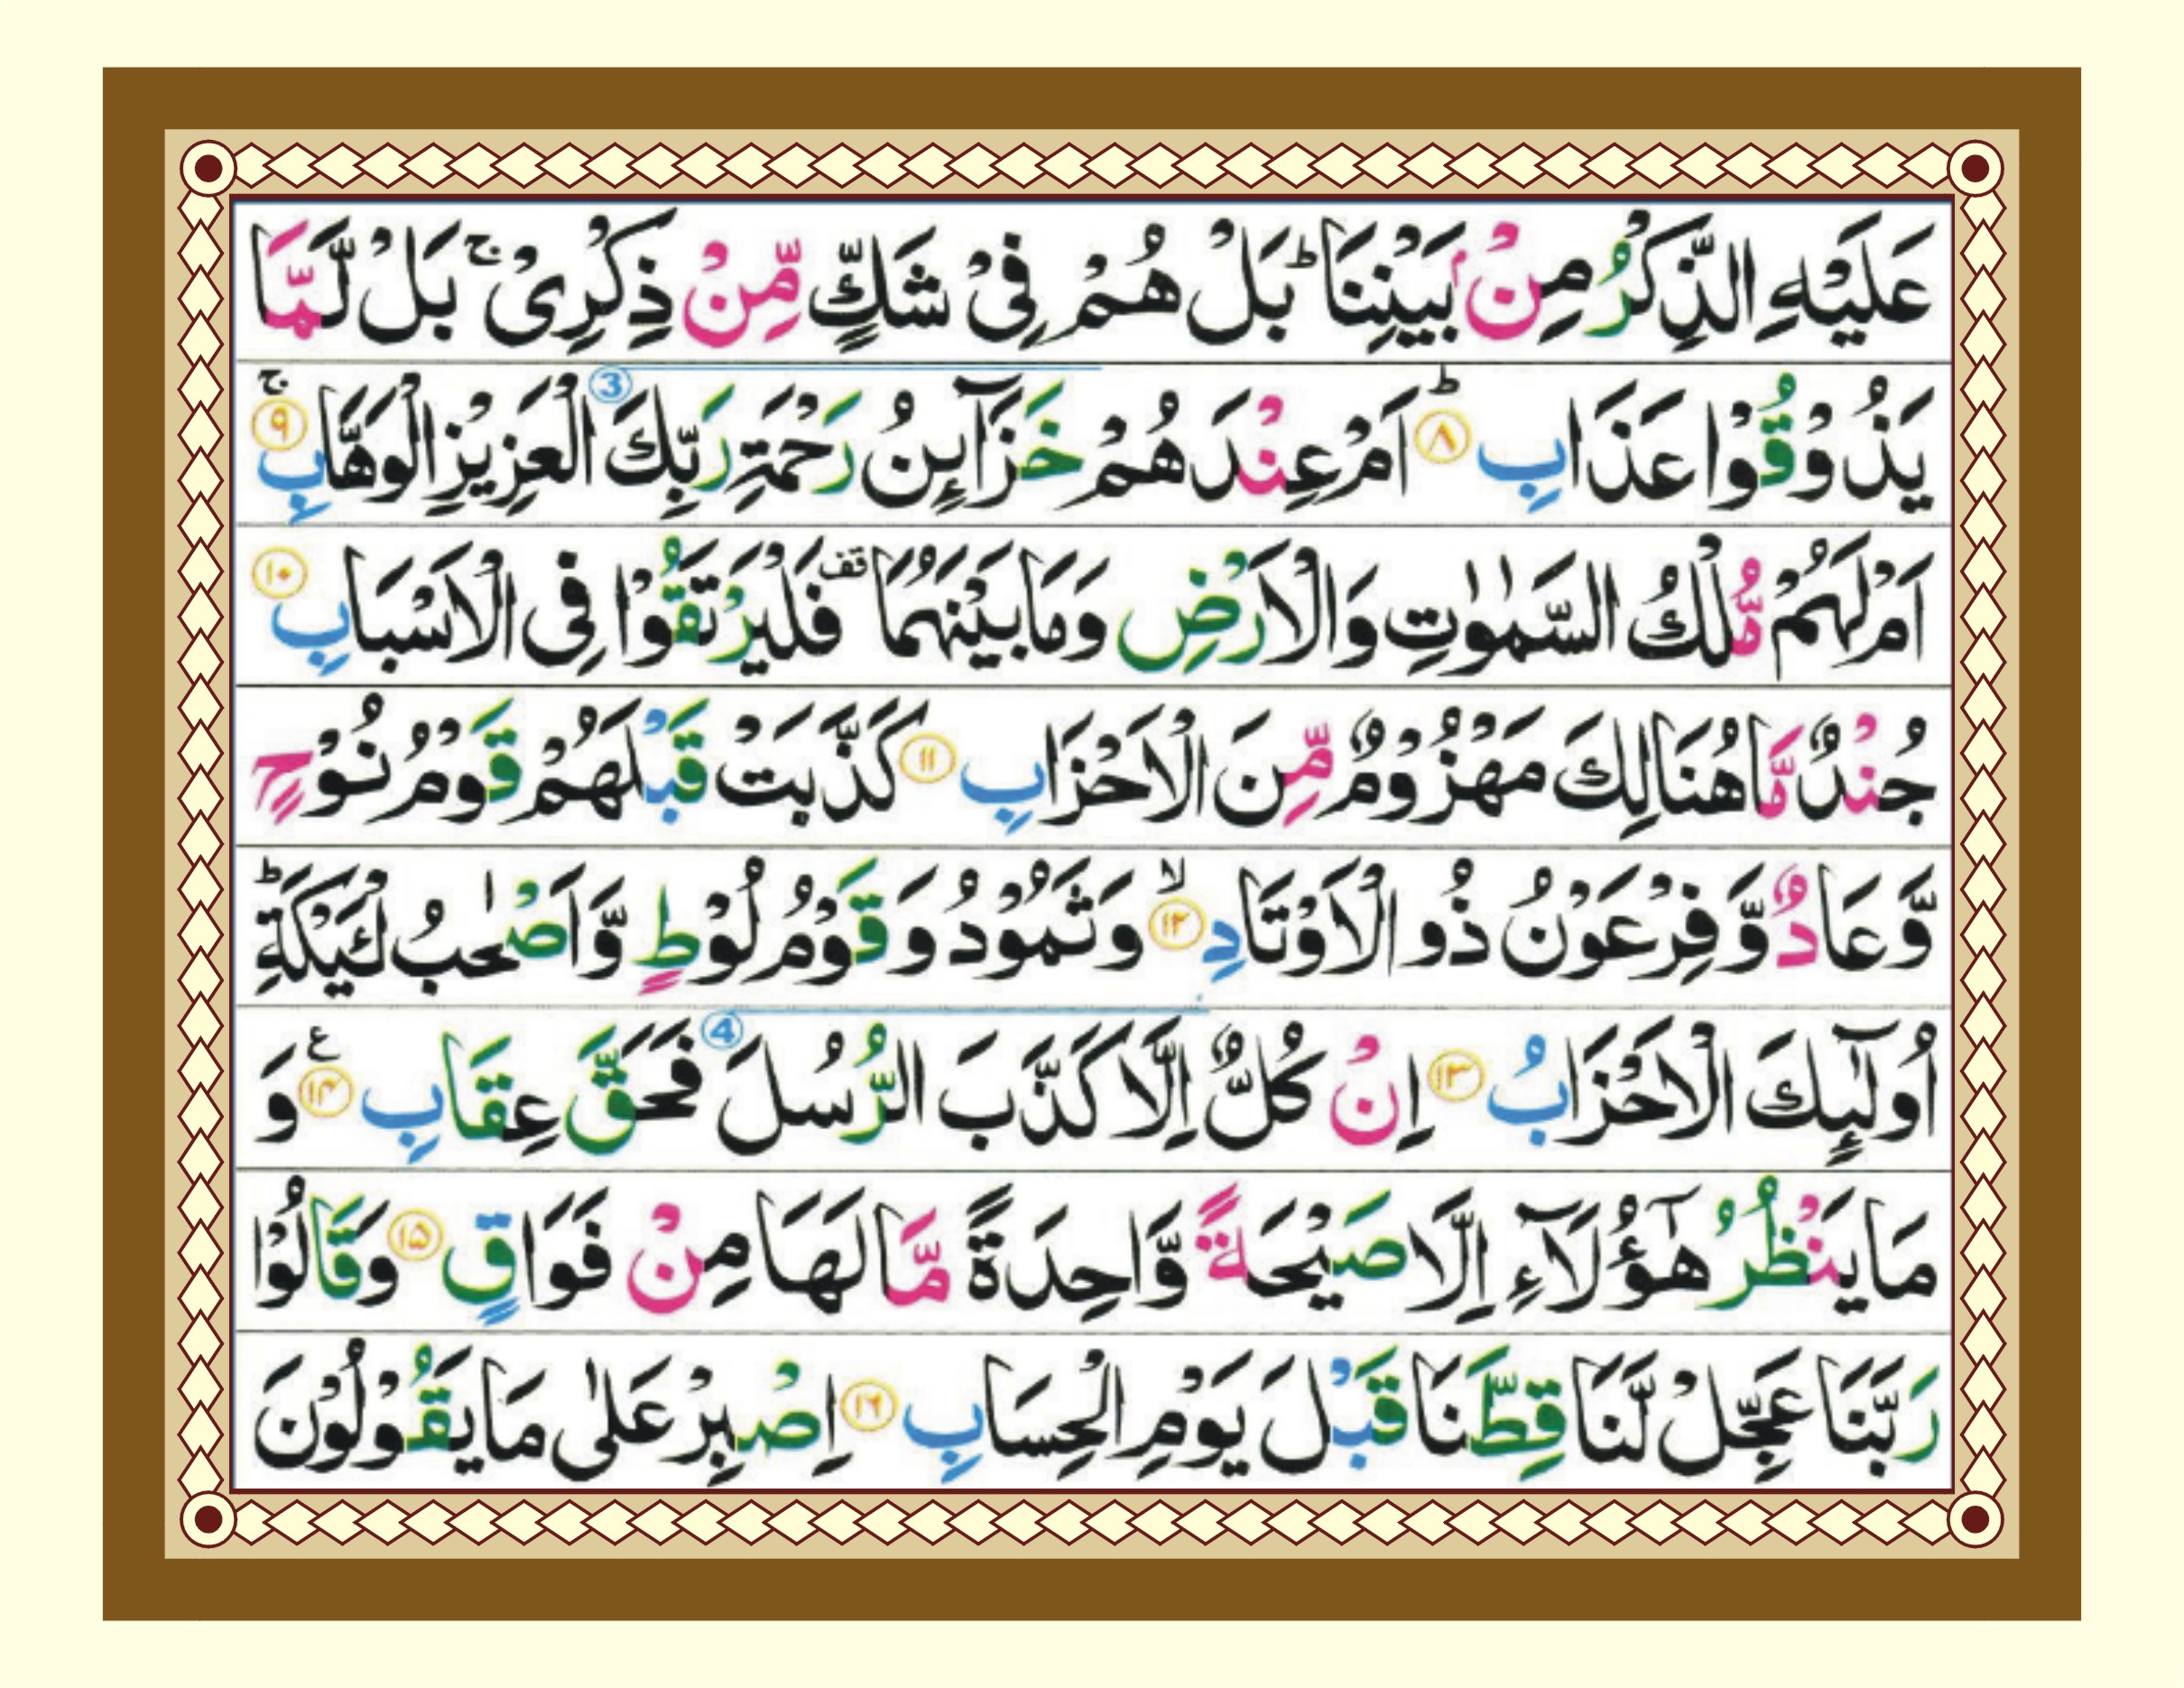 عَلَيْهِ الذِّكْرُ مِنْۢ بَيْنِنَا ؕ بَلْ هُمْ فِىْ شَكٍّ مِّنْ ذِكْرِىْ ۚ بَلْ لَّمَّا
يَذُوْقُوْا عَذَابِ ؕ ۸ اَمْ عِنْدَهُمْ خَزَآىِٕنُ رَحْمَةِ رَبِّكَ ③ الْعَزِيْزِ الْوَهَّابِ ۚ ۹
اَمْ لَهُمْ مُّلْكُ السَّمٰوٰتِ وَالْاَرْضِ وَمَا بَيْنَهُمَا قف فَلْيَرْتَقُوْا فِى الْاَسْبَابِ ۱۰
جُنْدٌ مَّا هُنَالِكَ مَهْزُوْمٌ مِّنَ الْاَحْزَابِ ۱۱ كَذَّبَتْ قَبْلَهُمْ قَوْمُ نُوْحٍ
وَّعَادٌ وَّفِرْعَوْنُ ذُو الْاَوْتَادِ ۙ ۱۲ وَثَمُوْدُ وَقَوْمُ لُوْطٍ وَّاَصْحٰبُ لْـَٔيْكَةِ ؕ
اُولٰٓىِٕكَ الْاَحْزَابُ ۱۳ اِنْ كُلٌّ اِلَّا كَذَّبَ الرُّسُلَ ④ فَحَقَّ عِقَابِ ع ۱۴ وَ
مَا يَنْظُرُ هٰٓؤُلَآءِ اِلَّا صَيْحَةً وَّاحِدَةً مَّا لَهَا مِنْ فَوَاقٍ ۱۵ وَقَالُوْا
رَبَّنَا عَجِّلْ لَّنَا قِطَّنَا قَبْلَ يَوْمِ الْحِسَابِ ۱۶ اِصْبِرْ عَلٰى مَا يَقُوْلُوْنَ